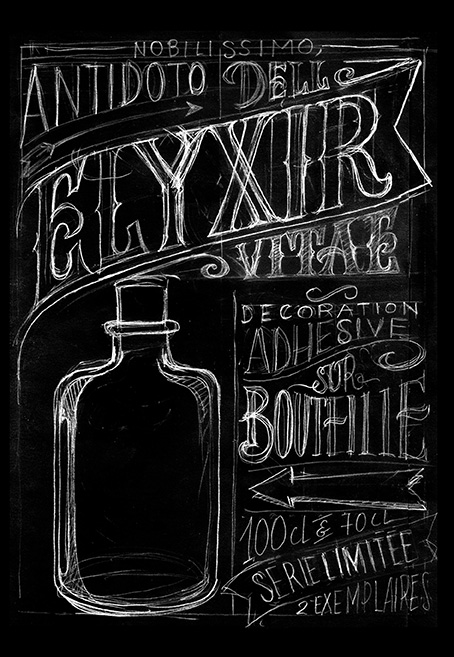 NOBILISSIMO,
ANTIDOTO DELL
ELYXIR
VITAE
DECORATION
ADHESIVE
SUR
BOUTEILLE
100cl & 70cl
SERIE LIMITEE
2 EXEMPLAIRES